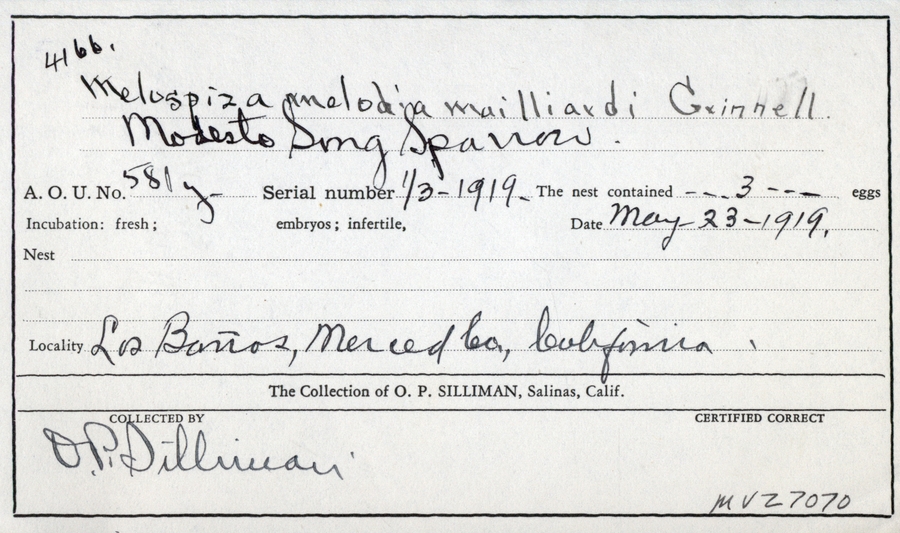 4166.
Melospiza melodia mailliardi Grinnell.
Modesto Song Sparrow.
A. O. U. No. 581y- Serial number 1/3-1919. The nest contained ---3--- eggs
Incubation: fresh; embryos; infertile, Date May-23-1919.
Nest
Locality Los Baños, Merced Co, California.
The Collection of O. P. SILLIMAN, Salinas, Calif.
COLLECTED BY CERTIFIED CORRECT
O.P. Silliman
MVZ 7070